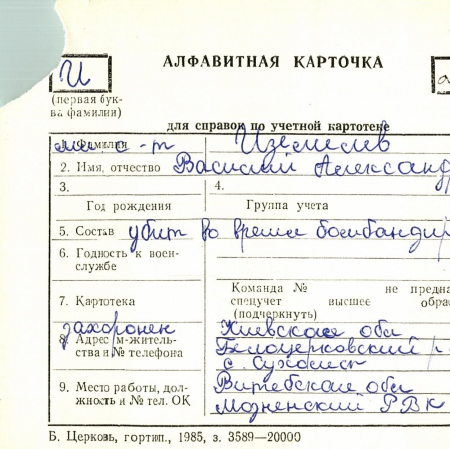 И
АЛФАВИТНАЯ КАРТОЧКА
(первая бук-
ва фамилии)
для справок по учетной картотеке
мл. с-т Фамилия Изémелев
2. Имя, отчество Василий Александ
3.
4.
Год рождения
Группа учета
5. Состав убит во время бомбандир
6. Годность к воен-
службе
Команда № не предна
7. Картотека
спецучет высшее обра
(подчеркнуть)
захоронен
Киевская обл
8. Адрес м-житель-
ства и № телефона
Белоцерковский р-
с. Сухолес
9. Место работы, дол-
жность и № тел. ОК
Витебская обл
Мозненский РВК
Б. Церковь, гортип., 1985, з. 3589—20000